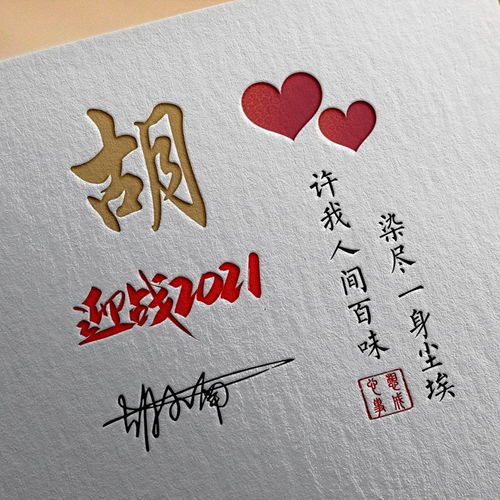 胡
迎战2021
许我人间百味
染尽一身尘埃
心想事成